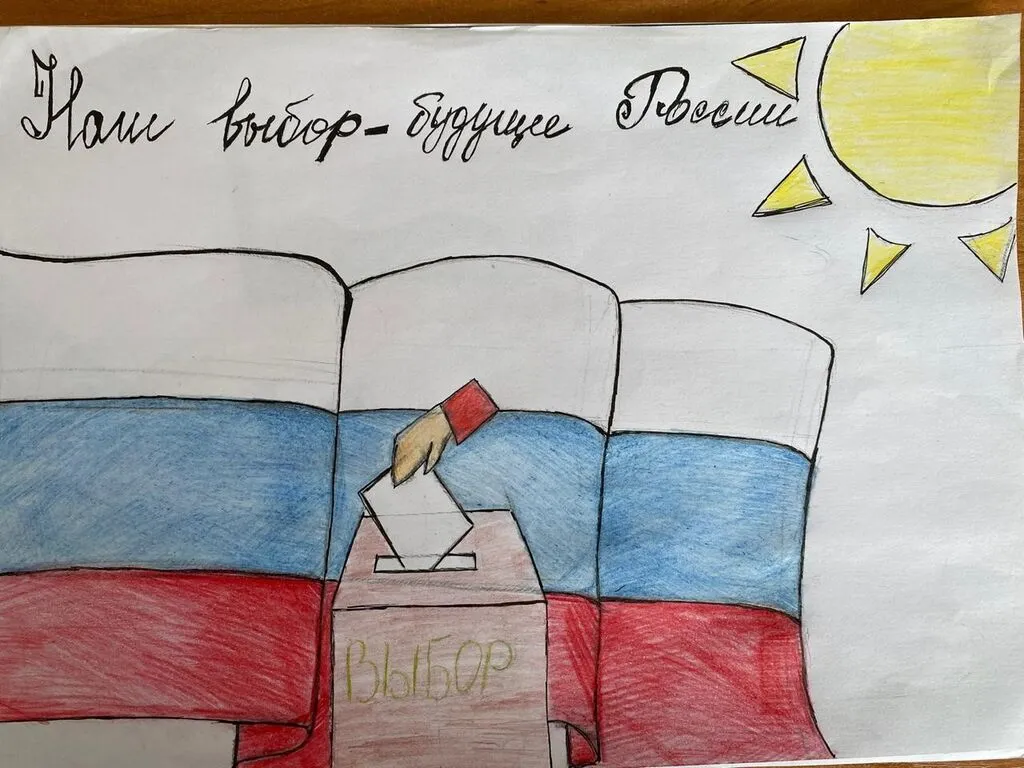 Наш выбор - будущее России
ВЫБОР